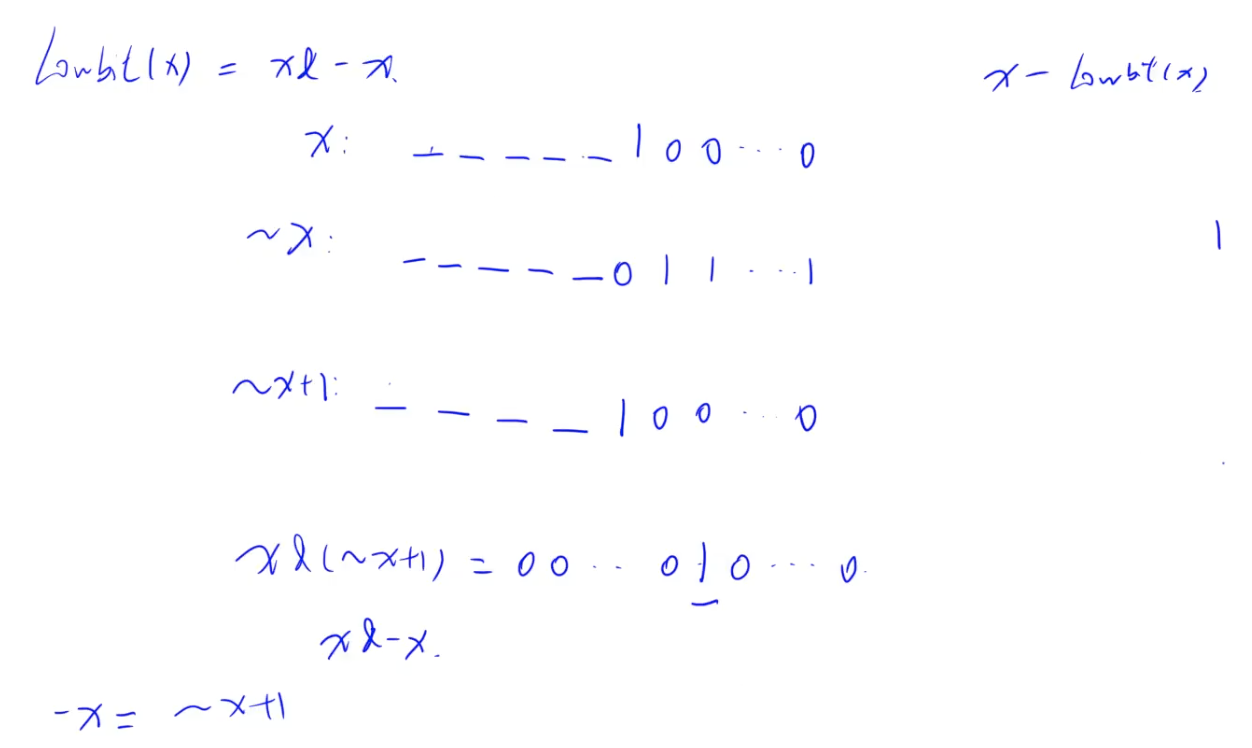 Lowbit(x) = x&-x.
x - Lowbit(x)
x: _ _ _ _ _ 1 0 0 ... 0
~x: _ _ _ _ _ 0 1 1 ... 1
1
~x+1: _ _ _ _ 1 0 0 ... 0
x&(~x+1) = 0 0 .. 0 1 0 ... 0.
x&-x.
-x = ~x+1